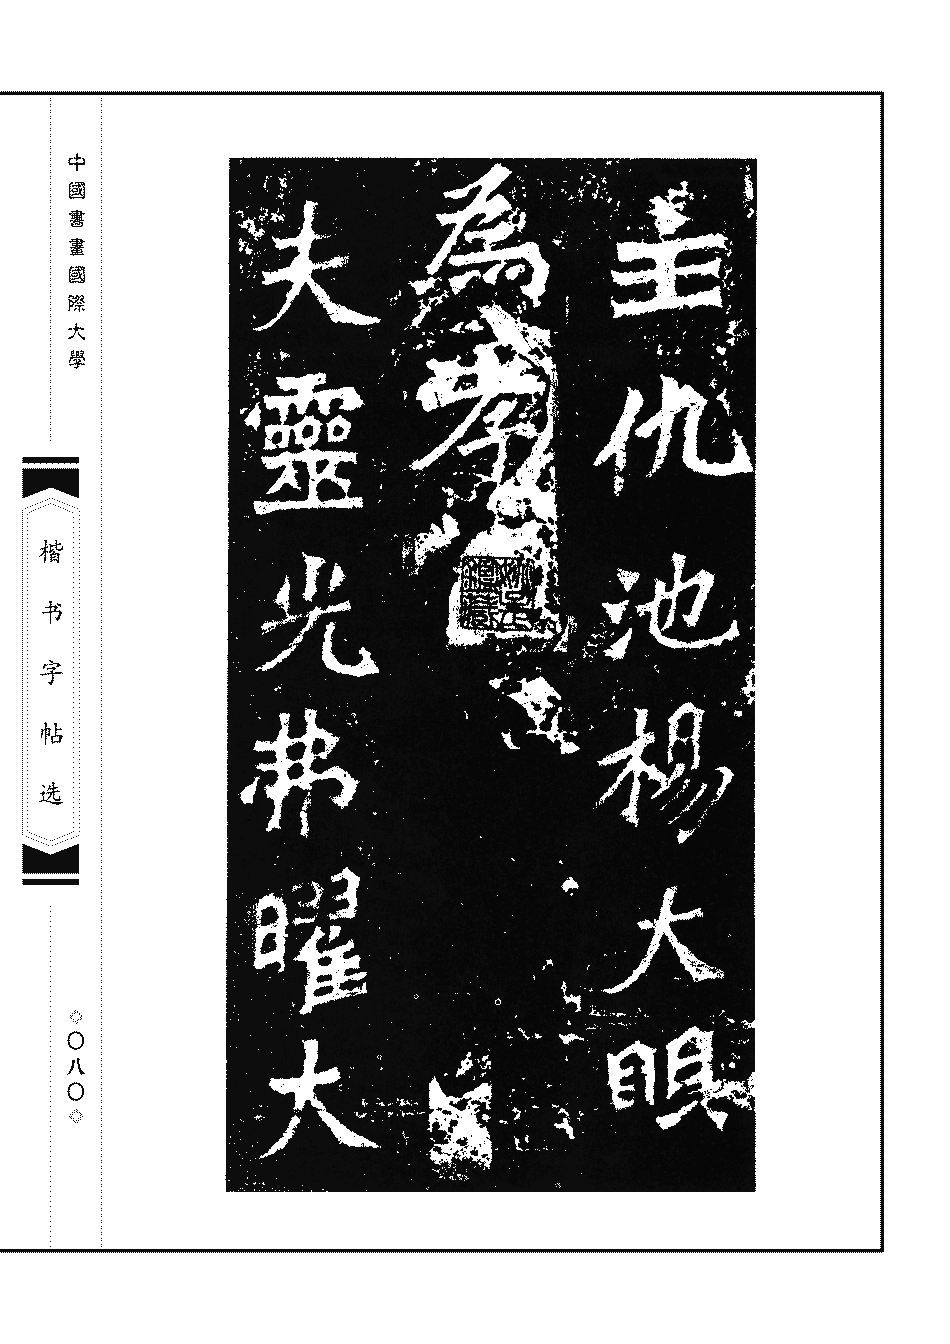 主仇池楊大眼
為孝
夫靈光弗曜大
中國書畫國際大學
楷书字帖选
〇八〇